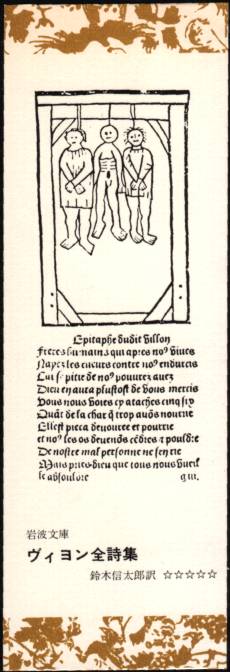 Epitaphe dudit Villon
Freres humains qui apres noꝰ viues
Nayez les cueurs contre noꝰ endurcis
Car se pitie de noꝰ pouurez auez
Dieu en aura plustost de vous mercis
Vous nous voies cy ataches cinq six
Quāt de la char q̄ trop auōs nourrie
Elleſt pieca deuouree et pourrie
et noꝰ les os deuenōs cēdres ⁊ pouldre
De nostre mal personne ne sen rie
Mais pries dieu que tous nous vueil
le absouldre g iii.
岩波文庫
ヴィヨン全詩集
鈴木信太郎訳 ☆☆☆☆☆